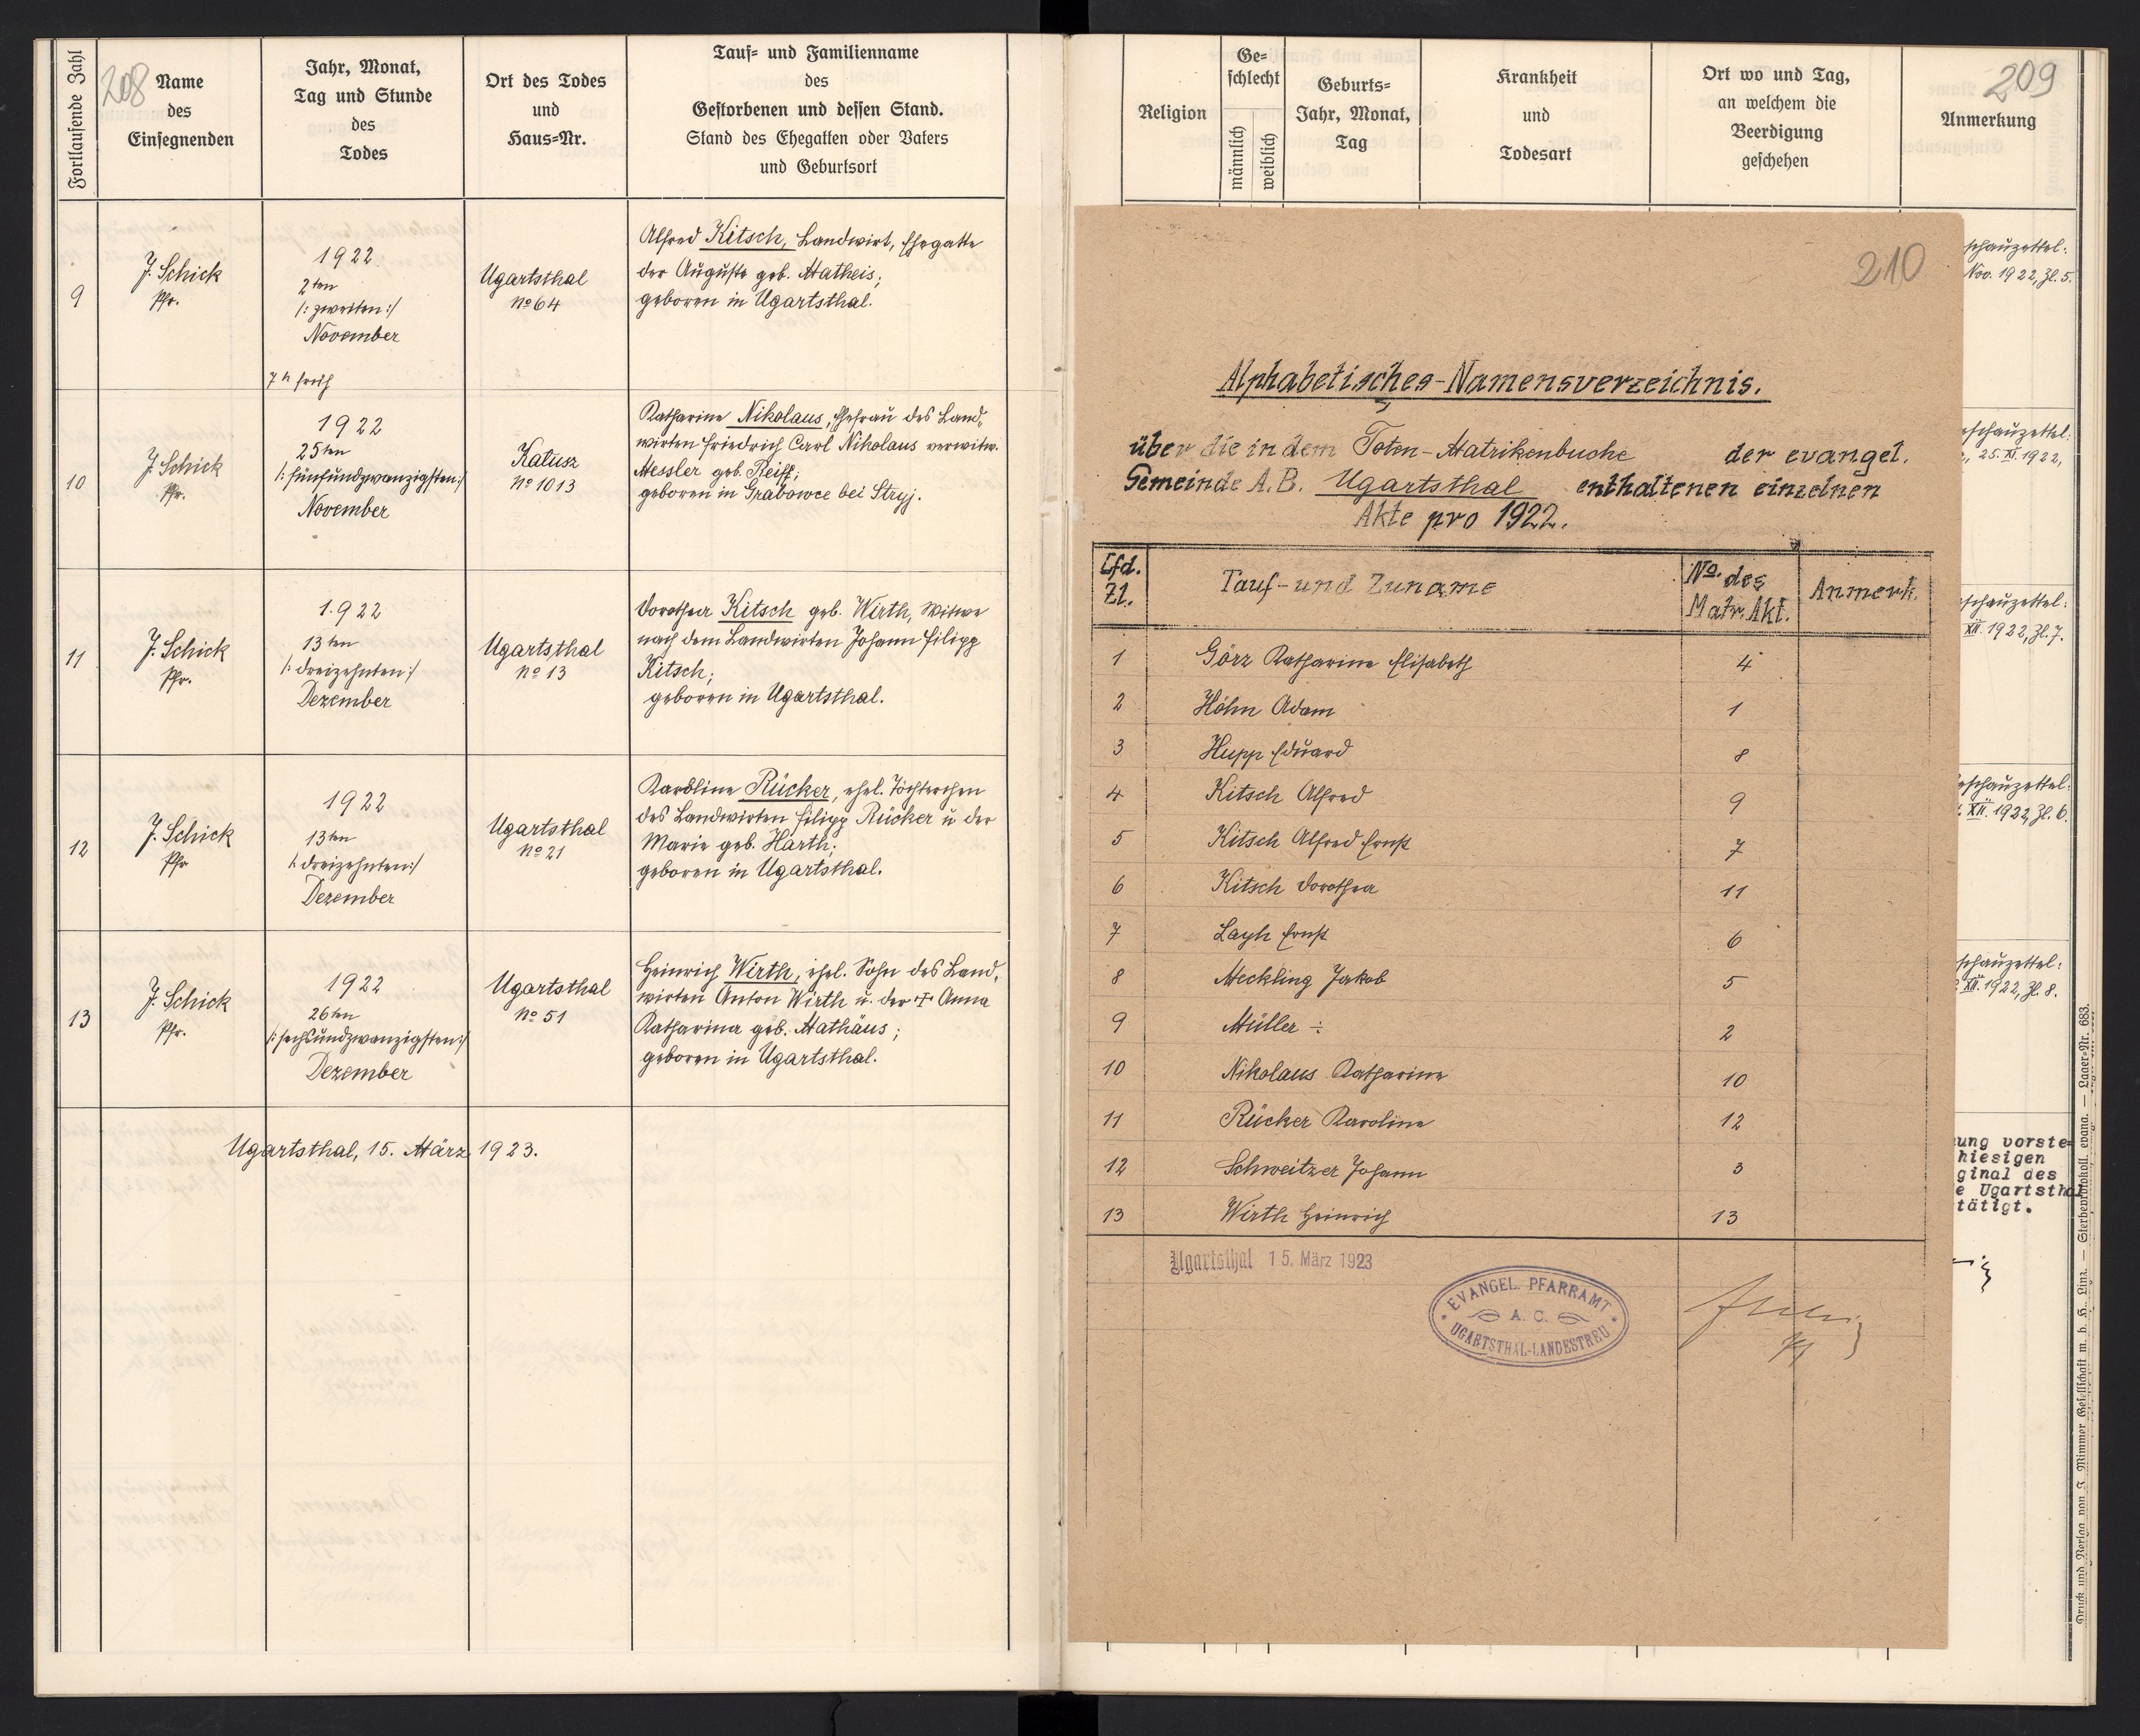 208
Fortlaufende Zahl
Name
des
Einsegnenden
Jahr, Monat,
Tag und Stunde
des
Todes
Ort des Todes
und
Haus=Nr.
Tauf= und Familienname
des
Gestorbenen und dessen Stand.
Stand des Ehegatten oder Vaters
und Geburtsort
9
J. Schick
Pfr.
1922
2ten
/: zweiten :/
November
7h früh
Ugartsthal
No 64
Alfred Kitsch, Landwirt, Ehegatte
der Auguste geb. Matheis;
geboren in Ugartsthal.
10
J. Schick
Pfr.
1922
25ten
/: fünfundzwanzigsten :/
November
Kałusz
No 1013
Katharine Nikolaus, Ehefrau des Land-
wirten Friedrich Carl Nikolaus verwitw.
Messler geb. Reiff;
geboren in Grabowce bei Stryj.
11
J. Schick
Pfr.
1922
13ten
/: dreizehnten :/
Dezember
Ugartsthal
No 13
Dorothea Kitsch geb. Wirth, Witwe
nach dem Landwirten Johann Filipp
Kitsch;
geboren in Ugartsthal.
12
J. Schick
Pfr
1922
13ten
/: dreizehnten :/
Dezember
Ugartsthal
No 21
Karoline Rücker, ehel. Töchterchen
des Landwirten Filipp Rücker u der
Marie geb. Harth;
geboren in Ugartsthal.
13
J. Schick
Pfr.
1922
26ten
/: sechsundzwanzigsten :/
Dezember
Ugartsthal
No 51
Heinrich Wirth, ehel. Sohn des Land-
wirten Anton Wirth u. der + Anna
Katharina geb. Mathäus;
geboren in Ugartsthal.
Ugartsthal, 15. März 1923.
Religion
Ge=
schlecht
männlich
weiblich
Geburts=
Jahr, Monat,
Tag
Krankheit
und
Todesart
Ort wo und Tag,
an welchem die
Beerdigung
geschehen
209
Anmerkung
210
Alphabetisches-Namensverzeichnis.
über die in dem Toten-Matrikenbuche der evangel.
Gemeinde A.B. Ugartsthal enthaltenen einzelnen
Akte pro 1922.
Lfd. Zl.
Tauf- und Zuname
No. des Matr. Akt.
Anmerk.
1 Görz Katharine Elisabeth 4
2 Höhn Adam 1
3 Hupp Eduard 8
4 Kitsch Alfred 9
5 Kitsch Alfred Ernst 7
6 Kitsch Dorothea 11
7 Layh Ernst 6
8 Meckling Jakob 5
9 Müller ÷ 2
10 Nikolaus Katharine 10
11 Rücker Karoline 12
12 Schweitzer Johann 3
13 Wirth Heinrich 13
Ugartsthal 15. März 1923
EVANGEL. PFARRAMT
A. C.
UGARTSTHAL-LANDESTREU
schauzettel:
Nov. 1922, Zl. 5.
schauzettel:
25. XI. 1922,
schauzettel:
XII. 1922, Zl. 7.
schauzettel:
XII. 1922, Zl. 6.
schauzettel:
XII. 1922, Zl. 8.
ung vorste=
hiesigen
ginal des
e Ugartsthal
tätigt.
Druck und Verlag von J. Wimmer Gesellschaft m. b. H. Linz. — Sterbeprotokoll, evang. — Lager=Nr. 683.